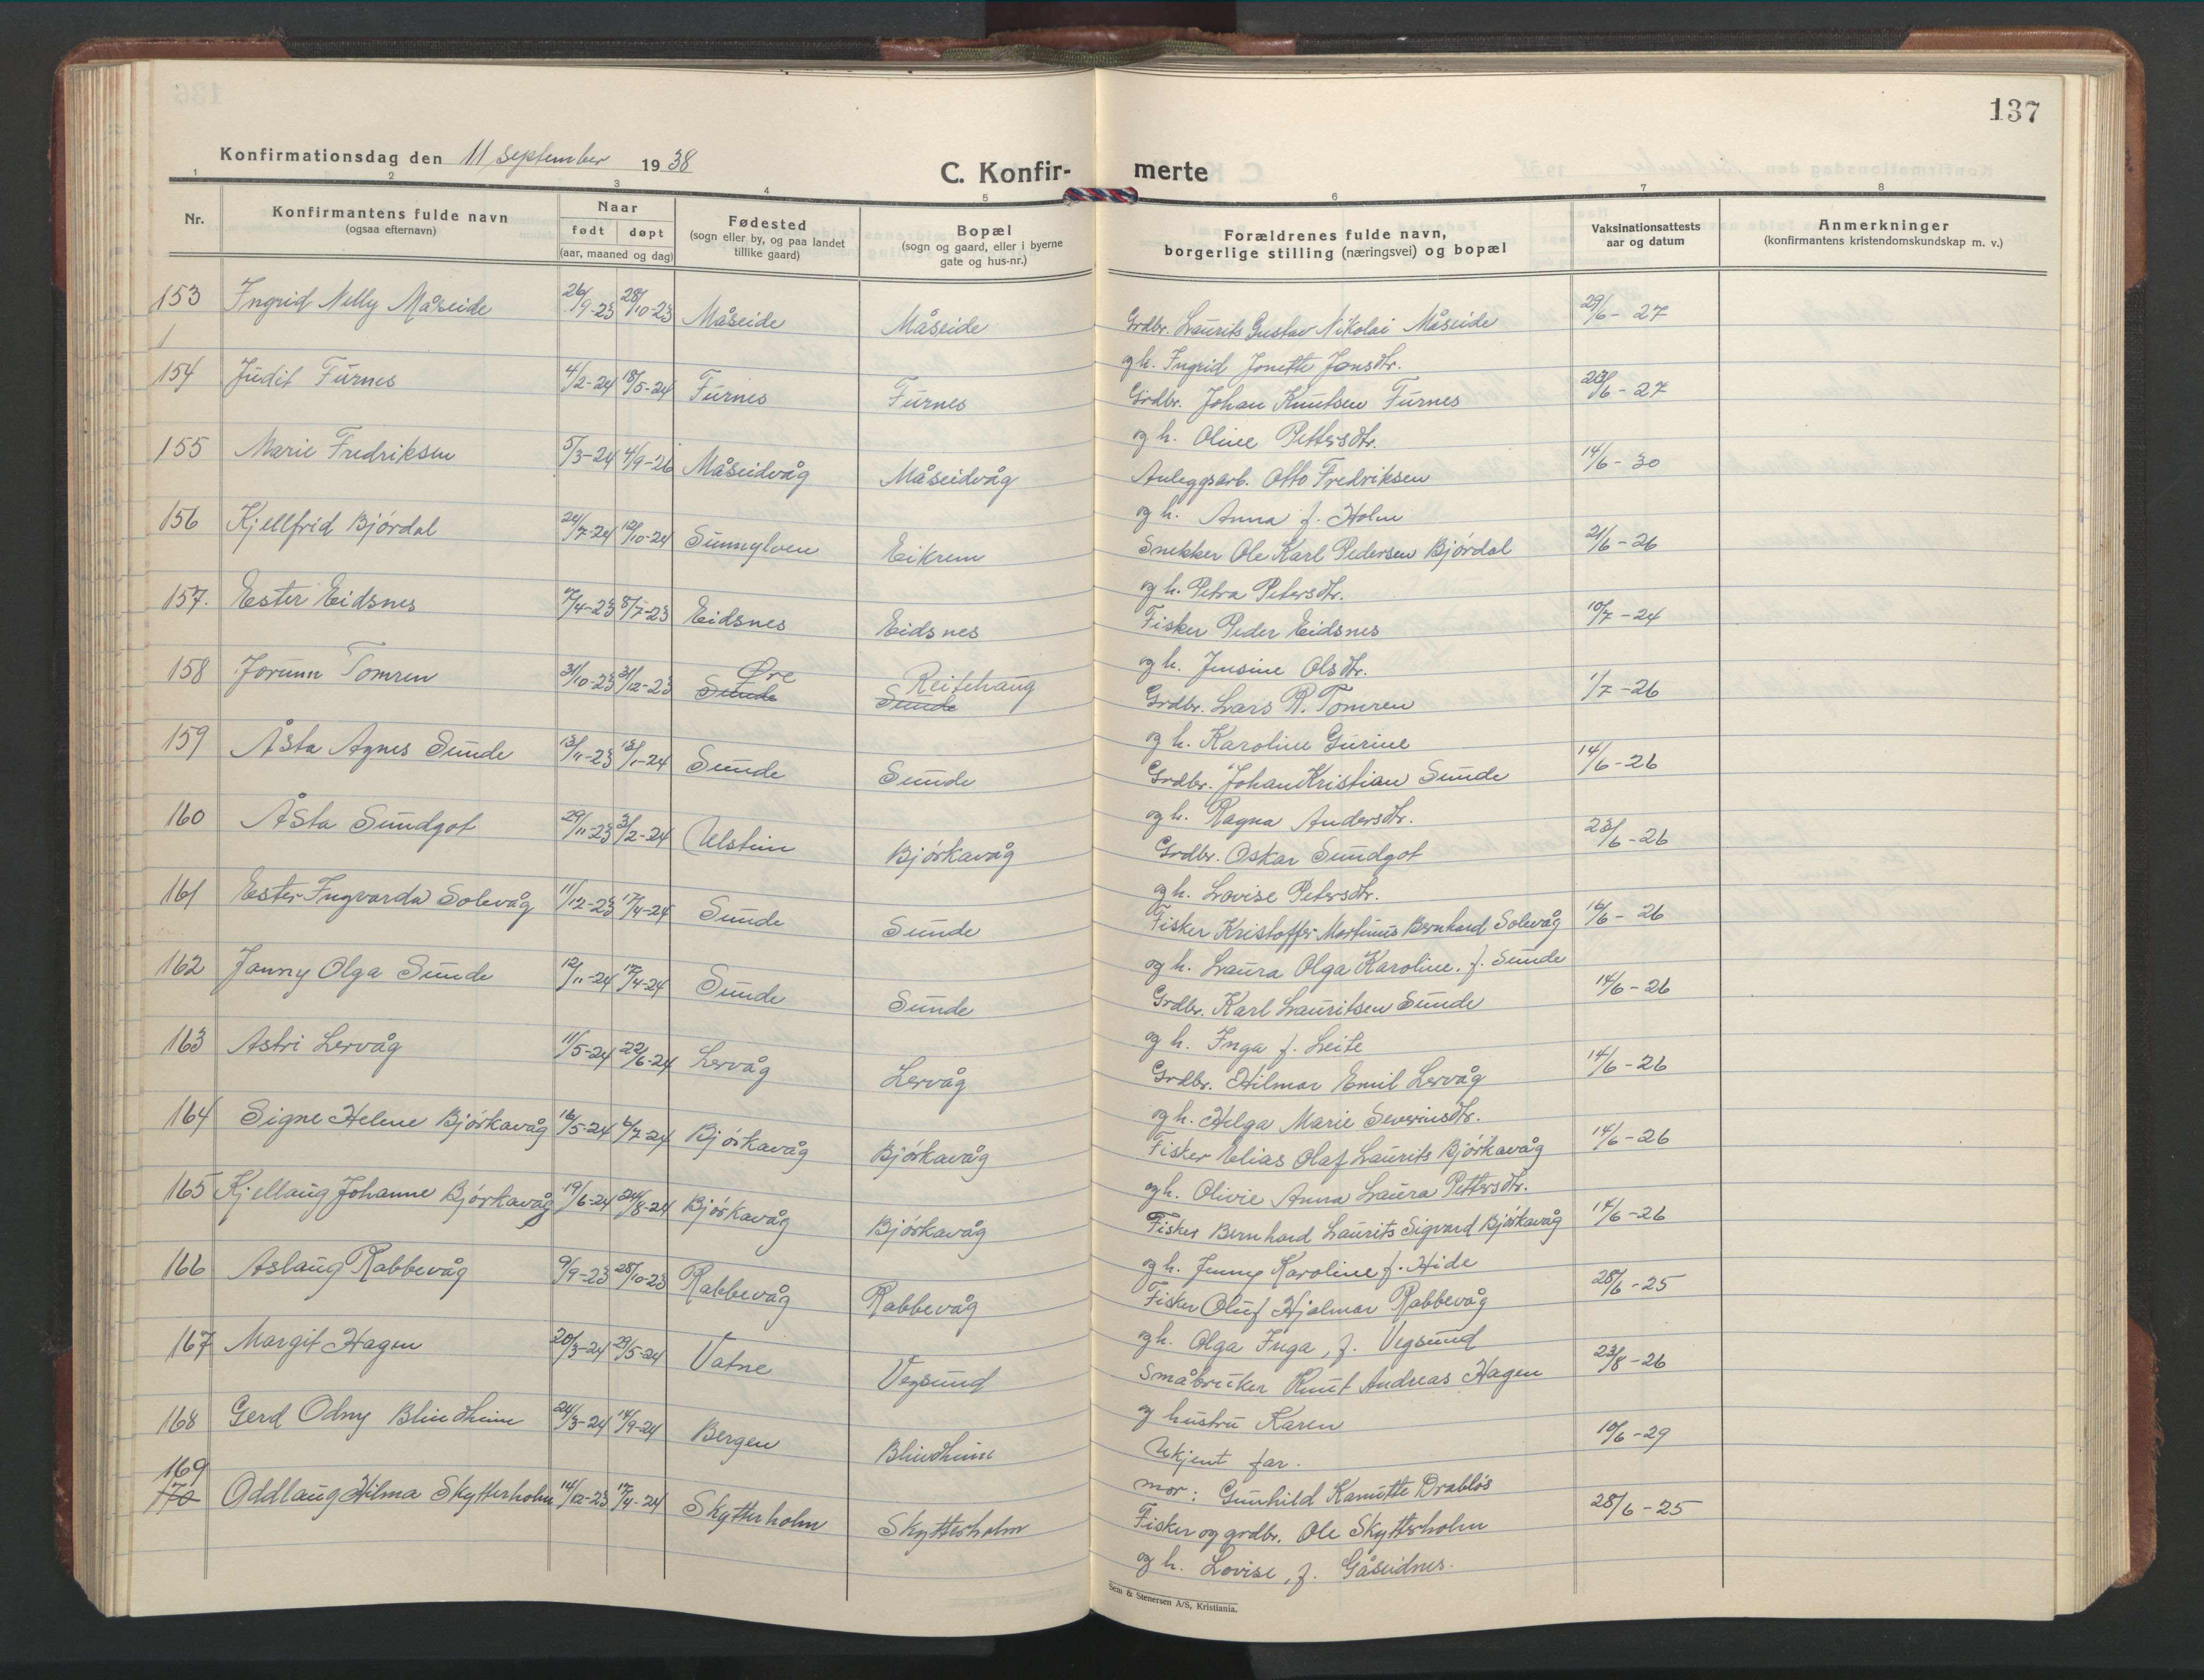 137
Konfirmationsdag den 11 september 1938
C. Konfir- merte
1 2 3 4 5 6 7 8
Nr.
Konfirmantens fulde navn
(ogsaa efternavn)
Naar
født døpt
(aar, maaned og dag)
Fødested
(sogn eller by, og paa landet
tillike gaard)
Bopæl
(sogn og gaard, eller i byerne
gate og hus-nr.)
Forældrenes fulde navn,
borgerlige stilling (næringsvei) og bopæl
Vaksinationsattests
aar og datum
Anmerkninger
(konfirmantens kristendomskundskap m. v.)
153 Ingrid Nelly Måseide 26/9-23 28/10-23 Måseide Måseide Grdbr. Laurits Gustav Nikolai Måseide 29/6-27
1 og h. Ingrid Jonette Jonsdtr.
154 Judit Furnes 4/2-24 18/5-24 Furnes Furnes Grdbr. Johan Knutsen Furnes 23/6-27
og h. Oline Pettersdtr.
155 Marie Fredriksen 5/3-24 4/9-26 Måseidvåg Måseidvåg Anleggsarb. Otto Fredriksen 14/6-30
og h. Anna f. Holm
156 Kjellfrid Bjórdal 24/7-24 12/10-24 Sunnylven Eikrem Snekker Ole Karl Pedersen Bjórdal 21/6-26
og h. Petra Petersdtr.
157. Ester Eidsnes 17/4-23 8/7-23 Eidsnes Eidsnes Fisker Peder Eidsnes 10/7-24
og h. Jensine Olsdtr.
158 Jorunn Tomren 31/10-23 31/12-23 Øre Sunde Reitehaug Sunde Grdbr. Lars R. Tomren 1/7-26
og h. Karoline Gurine
159 Åsta Agnes Sunde 13/11-23 13/1-24 Sunde Sunde Grdbr. Johan Kristian Sunde 14/6-26
og h. Ragna Andersdtr.
160 Åsta Sundgot 29/11-23 3/2-24 Ulstein Bjórkavåg Grdbr. Oskar Sundgot 23/6-26
og h. Lovise Petersdtr.
161 Ester Ingvarda Solevåg 11/12-23 17/4-24 Sunde Sunde Fisker Kristoffer Martinus Bernhard Solevåg 16/6-26
og h. Laura Olga Karoline. f. Sunde
162 Janny Olga Sunde 12/11-24 17/4-24 Sunde Sunde Grdbr. Karl Lauritsen Sunde 14/6-26
og h. Inga f. Leite
163 Astri Lervåg 11/5-24 22/6-24 Lervåg Lervåg Grdbr. Hilmar Emil Lervåg 14/6-26
og h. Helga Marie Severinsdtr.
164 Signe Helene Bjórkavåg 16/5-24 6/7-24 Bjórkavåg Bjórkavåg Fisker Elias Olaf Laurits Bjórkavåg 14/6-26
og h. Olivie Anna Laura Pettersdtr.
165 Kjellaug Johanne Bjórkavåg 19/6-24 24/8-24 Bjórkavåg Bjórkavåg Fisker Bernhard Laurits Sigvard Bjórkavåg 14/6-26
og h. Jenny Karoline f. Hide
166 Aslaug Rabbevåg 9/9-23 28/10-23 Rabbevåg Rabbevåg Fisker Oluf Hjalmar Rabbevåg 28/6-25
og h. Olga Inga, f. Vegsund
167 Margit Hagen 20/3-24 29/5-24 Vatne Vegsund Småbruker Knut Andreas Hagen 23/8-26
og hustru Karen
168 Gerd Odny Blindheim 24/3-24 14/9-24 Bergen Blindheim Ukjent far. 10/6-29
mor: Gunhild Kanutte Drabløs
169
170 Oddlaug Hilma Skytterholm 14/12-23 17/4-24 Skytterholm Skytterholm Fisker og grdbr. Ole Skytterholm 28/6-25
og h. Lovise, f. Gåseidnes.
Sem & Stenersen A/S, Kristiania.